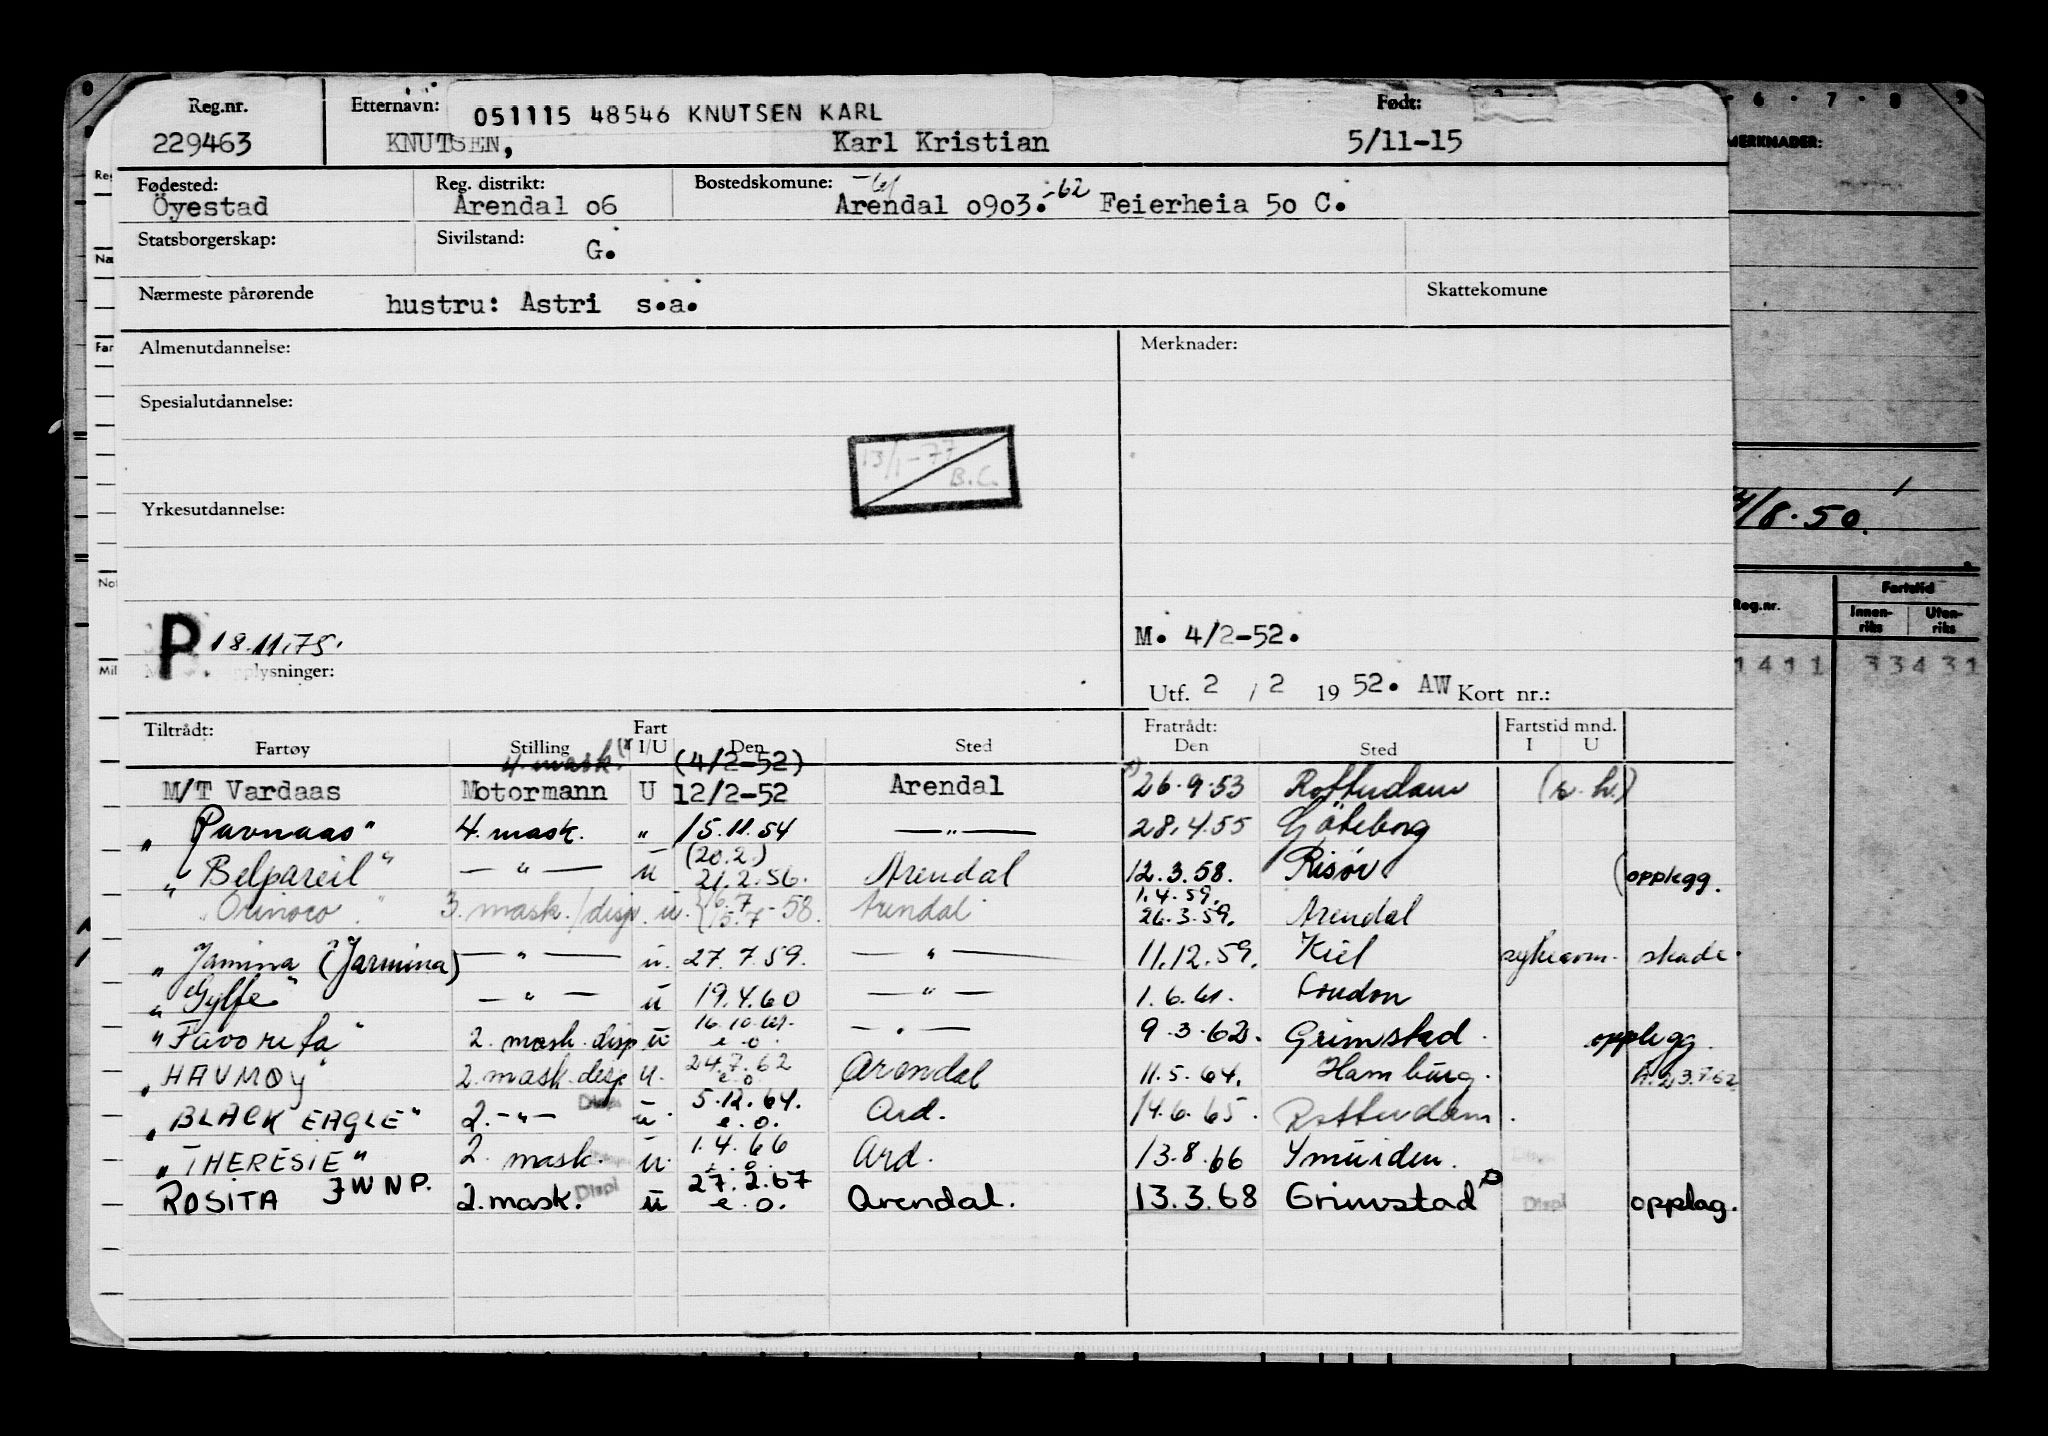 Reg.nr. Etternavn: 051115 48546 KNUTSEN KARL Født:
229463 KNUTSEN, Karl Kristian 5/11-15
Fødested: Reg. distrikt: Bostedskomune:
Öyestad Arendal o6 Arendal o9o3. -62 Feierheia 5o C.
Statsborgerskap: Sivilstand: G.
Nærmeste pårørende hustru: Astri s.a. Skattekomune
Almenutdannelse: Merknader:
Spesialutdannelse:
13/1-77
B.C.
Yrkesutdannelse:
P 18.11.75. M. 4/2-52.
plysninger: Utf. 2 / 2 19 52. AW Kort nr.:
Tiltrådt: Fart Fratrådt: Fartstid mnd.
Fartøy Stilling I/U Den Sted Den Sted I U
4. mask. (4/2-52)
M/T Vardaas Motormann U 12/2-52 Arendal 26.9.53 Rotterdam
" 4. mask. " 15.11.54 —"— 28.4.55 Göteborg
(20.2.)
" Belpareil" —"— u 21.2.56. Arendal 12.3.58. Risör (opplegg.
16.7 1.4.59.
"Orinoco" 3. mask./disp. u. 15.7-58. Arendal 26.3.59. Arendal
" Jamina (Jarmina) —"— u. 27.7.59. —"— 11.12.59. Kiel skade.
" Gylfe" —"— u 19.4.60 —"— 1.6.61. London
16.10.61.
"Favorita" 2. mask. disp u e.o. —"— 9.3.62. Grimstad. opplegg.
"HAVMØY" 2. mask. disp u. 24.7.62 e.o. Arendal 11.5.64. Hamburg. A.23.7.62
"BLACK EAGLE" 2. —"— Disp u. 5.12.64. e.o. Ard. 14.6.65. Rotterdam.
"THERESIE" 2. mask. u. 1.4.66 e.o. Ard. 13.8.66 Ymuiden.
ROSITA JWNP. 2. mask. Displ u 27.2.67 e.o. Arendal. 13.3.68 Grimstad Displ opplag.
6 . 7 . 8 . 9
MERKNADER:
/8.50.
Reg.nr. Fartstid
Innen-riks Uten-riks
1411 33431